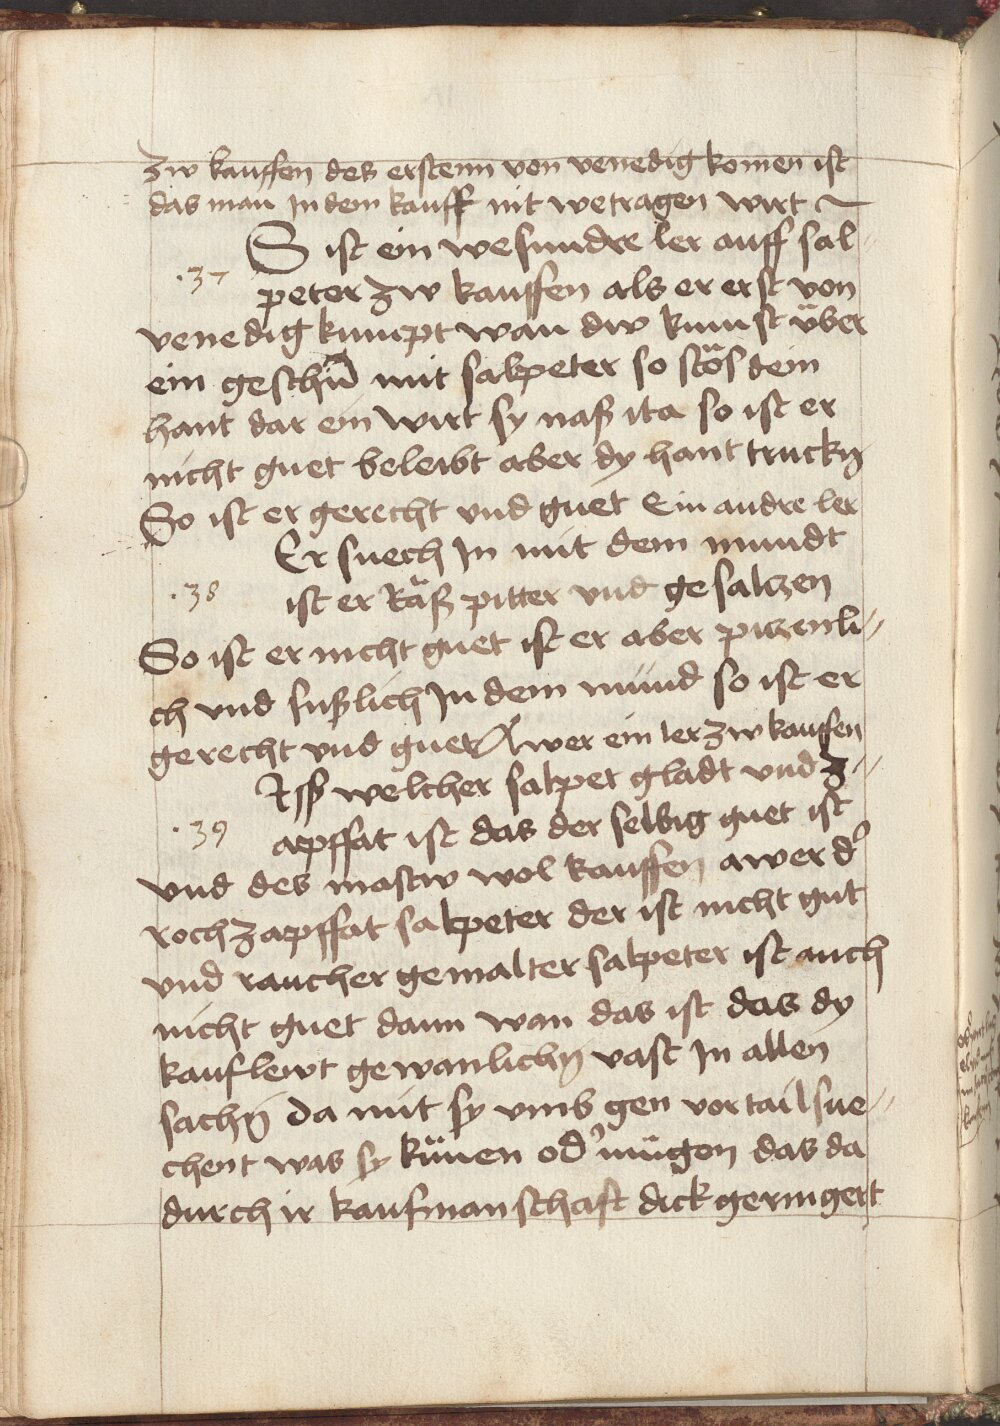 zw kauffen des erstenn von venedig komen ist
das man In dem kauff nit wetragen wirt
S ist ein wesundre ler auff sal-
.37 peter zw kauffen als er erst von
venedig kumpt wan dw kumst über
ein geschir mit salpeter so stös dein
hant dar ein wirt sy naß ita so ist er
nicht guet beleibt aber dy hant truckn
So ist er gerecht vnd guet Ein andre ler
Er suech In mit dem mundt
.38 ist er Räß pitter vnd gesalczen
So ist er nicht guet ist er aber piczenli-
ch vnd sußlich In dem mund so ist er
gerecht vnd guet Awer ein ler zw kauffen
welcher salpet gladt vnd z-
.39 apffat ist das der selbig guet ist
vnd des mastw wol kauffen awer d'
roch zapffat salpeter der ist nicht gut
vnd raucher gemalter salpeter ist auch
nicht guet dann wan das ist das dy
kauflewt gewanlichn vast In allen
sachn da mit sy vmb gen vortail sue-
chent was sy künen od' mügen das da
durch ir kaufmanschaft dick geringert